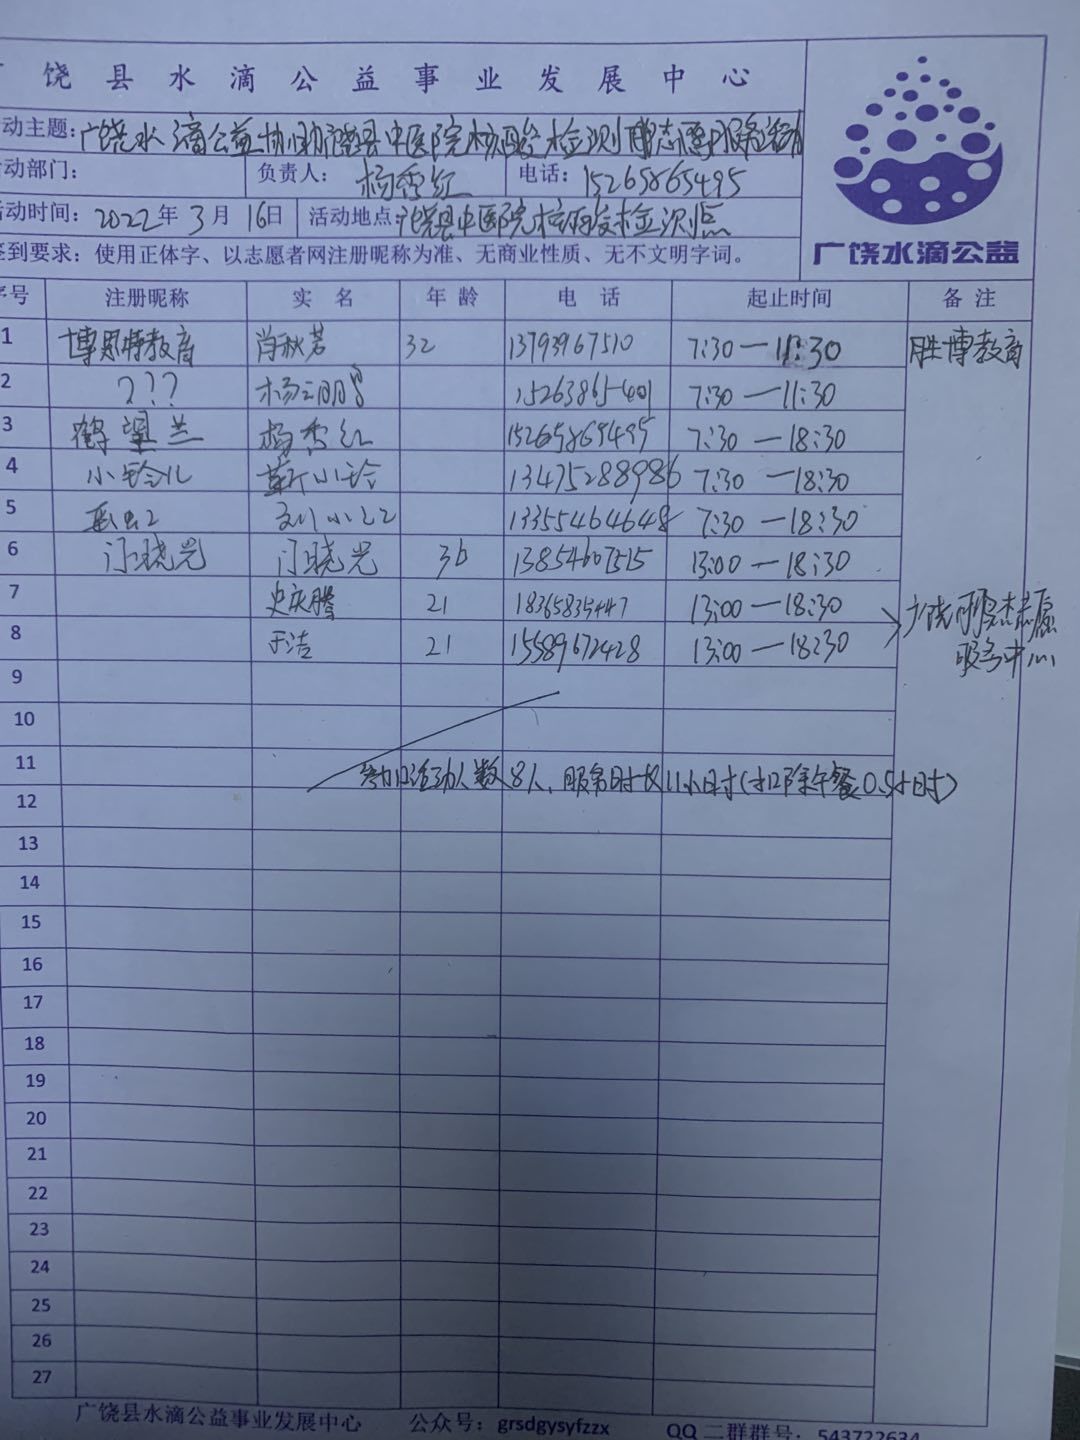 饶县水滴公益事业发展中心
动主题：广饶水滴公益协助广饶县中医院核酸检测 志愿服务活动
动部门： 负责人：杨秀红 电话：15265865495
动时间：2022年3月16日 活动地点：广饶县中医院核酸检测点
签到要求：使用正体字、以志愿者网注册昵称为准、无商业性质、无不文明字词。
广饶水滴公益
序号 注册昵称 实名 年龄 电话 起止时间 备注
1 博思特教育 肖秋芳 32 13793967510 7:30—11:30 胜博教育
2 ??? 杨 鹏 15263865401 7:30—11:30
3 鹤望兰 杨秀红 15265865495 7:30—18:30
4 小铃儿 靳小铃 13475288986 7:30—18:30
5 刘小红 13355464648 7:30—18:30
6 门晓光 门晓光 36 13854607515 13:00—18:30
7 史庆腾 21 18365835447 13:00—18:30
8 于洁 21 15589672428 13:00—18:30
广饶 志愿
服务中心
9
10
11
参加活动人数8人、服务时长11小时（扣除午餐0.5小时）
12
13
14
15
16
17
18
19
20
21
22
23
24
25
26
27
广饶县水滴公益事业发展中心 公众号：grsdgysyfzzx QQ二群群号：543722634